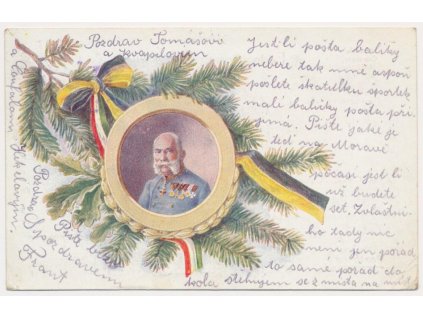 Pozdrav Tomášovi
a Kvapilovim
Jest li pošta balíky
nebere tak mně aspoň
pošlete škatulku sportek
malí balíčky pošta při
jímá. Pište jaké je
teď na Moravě
počasí jest li
už budete
set, Zvláštní
ho tady nic
není jen pořád
to samé pořád do
kola stěhujem se z místa na
Pište
s pozdravem
Frant
Pozdrav
a